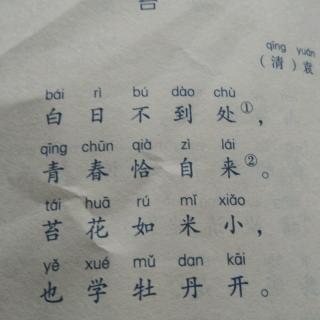 qīng yuán
（清）袁
bái rì bú dào chù
白日不到处①，
qīng chūn qià zì lái
青春恰自来②。
tái huā rú mǐ xiǎo
苔花如米小，
yě xué mǔ dan kāi
也学牡丹开。